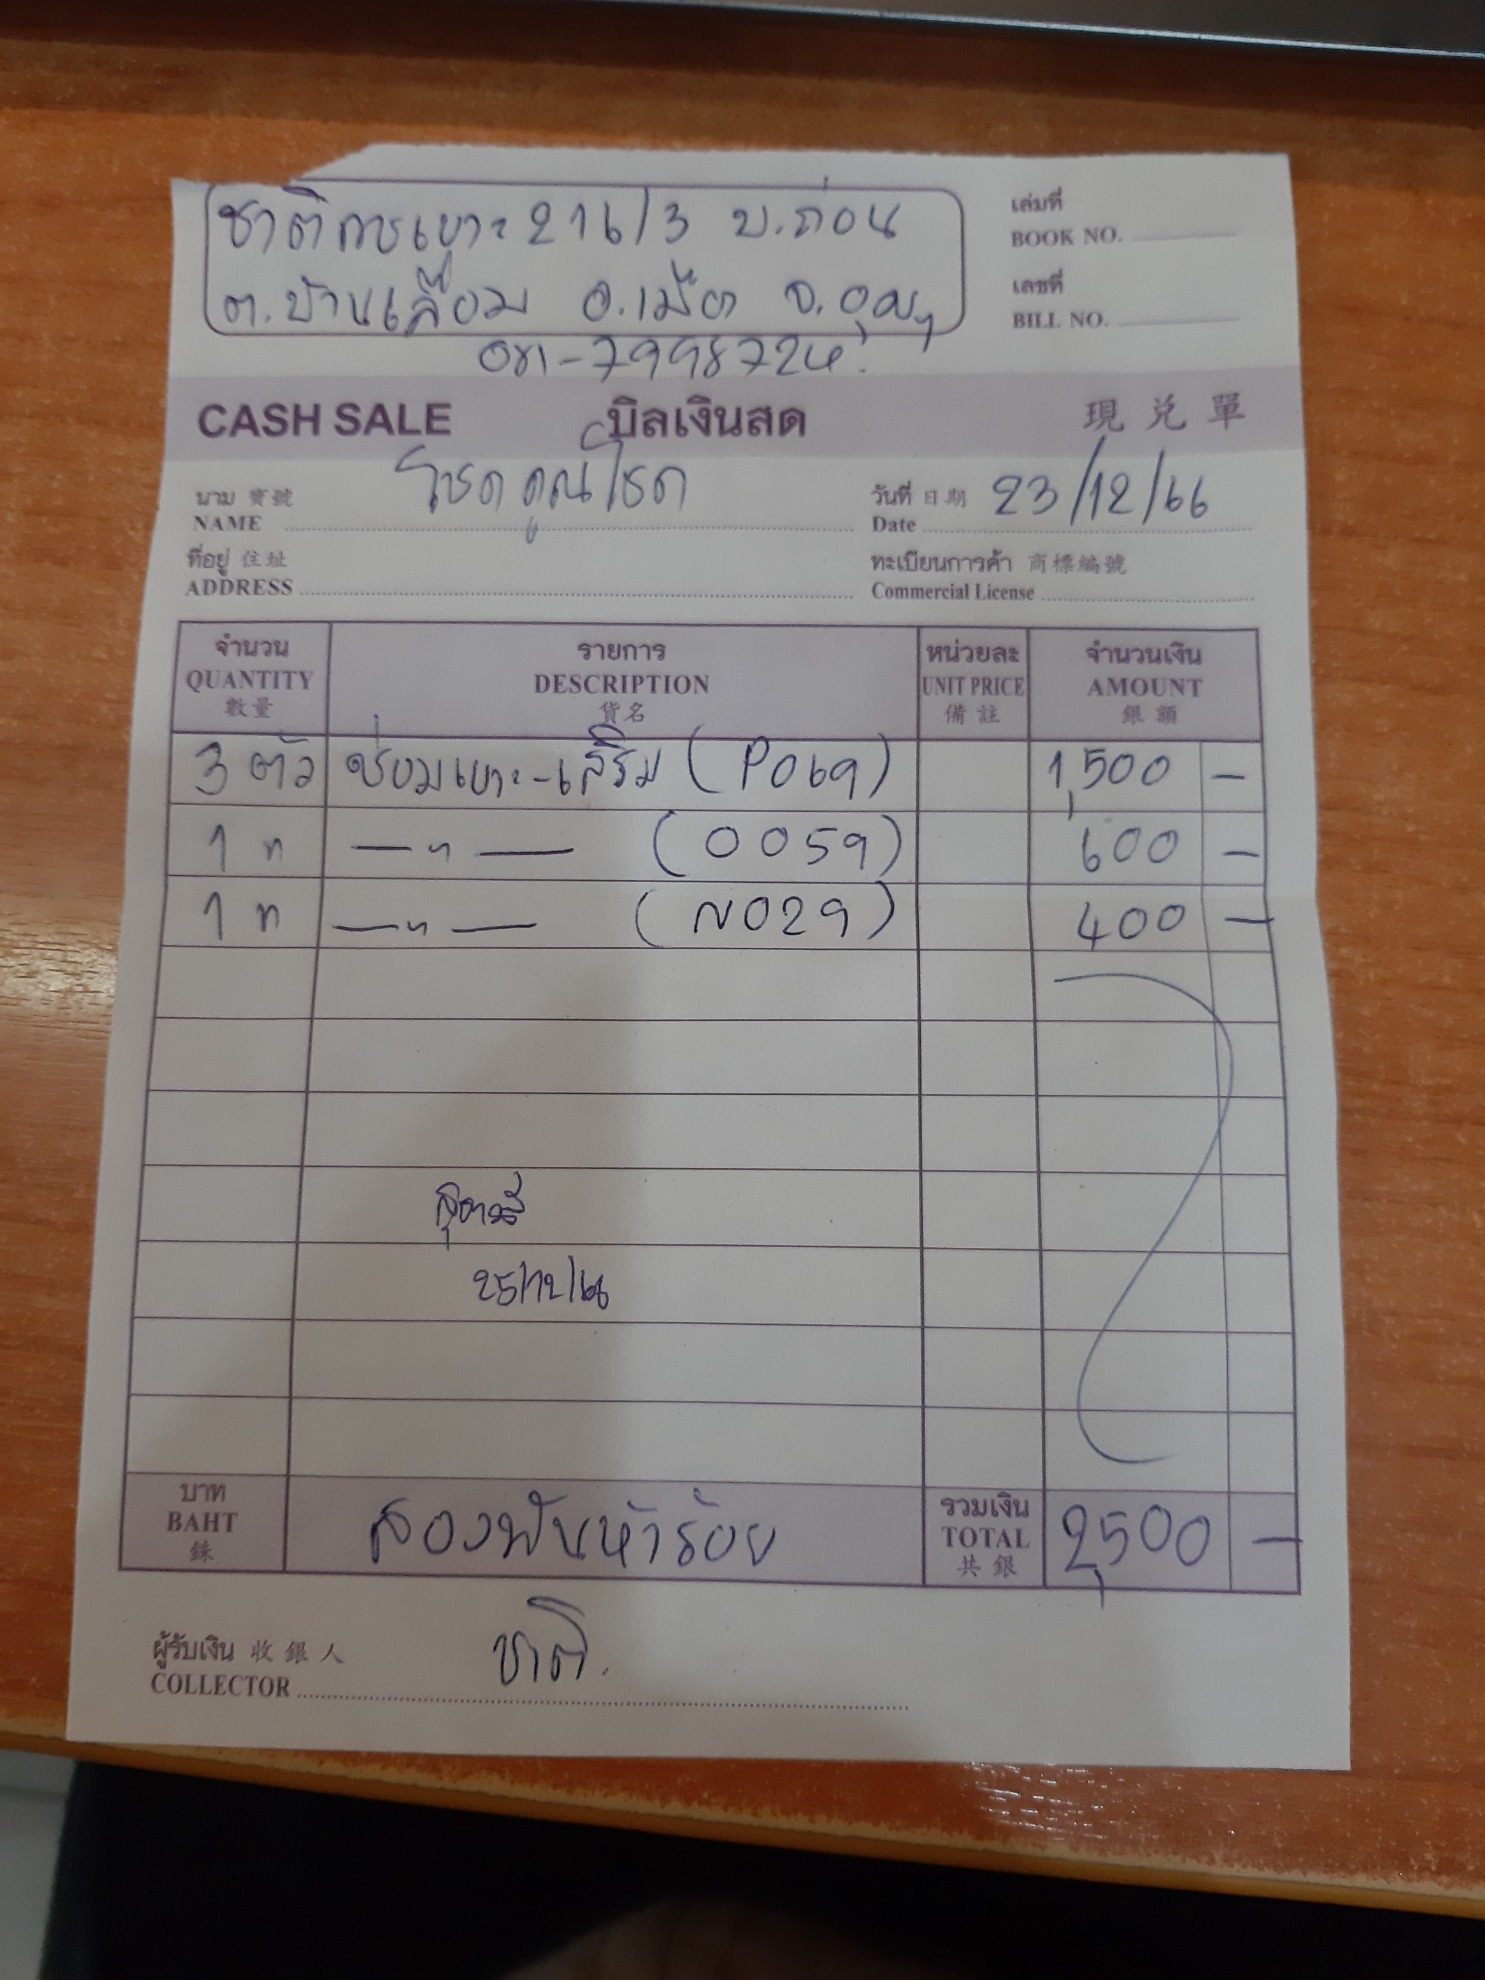 ชาติการเบาะ 216/3 บ.ถ่อน
ต.บ้านเลื่อม อ.เมือง จ.อุดรฯ
081-7998724.
เล่มที่
BOOK NO.
เลขที่
BILL NO.
CASH SALE บิลเงินสด 現兌單
นาม 寶號
NAME โชคคูณโชค
วันที่ 日期
Date 23/12/66
ที่อยู่ 住址
ADDRESS
ทะเบียนการค้า 商標編號
Commercial License
จำนวน รายการ หน่วยละ จำนวนเงิน
QUANTITY DESCRIPTION UNIT PRICE AMOUNT
數量 貨名 備註 銀額
3 ตัว ซ่อมเบาะ-เสริม (P069) 1,500 —
1 " —"— (0059) 600 —
1 " —"— (N029) 400 —
25/12/66
บาท
BAHT
銖
สองพันห้าร้อย
รวมเงิน
TOTAL
共銀
2,500 —
ผู้รับเงิน 收銀人
COLLECTOR ชาติ.